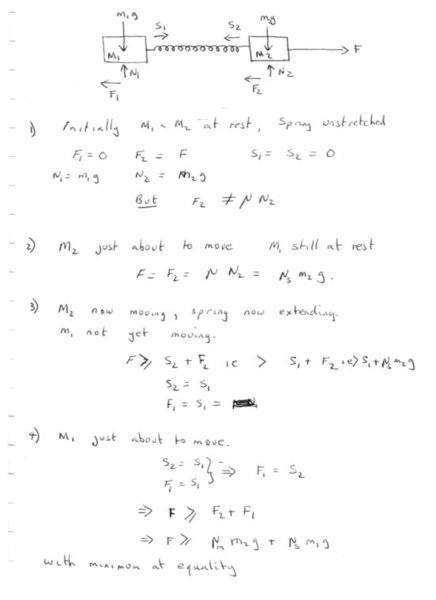 m₁g
m₂g
S₁
S₂
M₁
M₂
F
N₁
N₂
F₁
F₂
1) Initially M₁ M₂ at rest, Spring unstretched
F₁ = 0 F₂ = F S₁ = S₂ = 0
N₁ = m₁g N₂ = m₂g
But F₂ ≠ μ N₂
2) M₂ just about to move M₁ still at rest
F = F₂ = μ N₂ = μₛ m₂ g.
3) M₂ now moving, spring now extending.
m₁ not yet moving.
F ⩾ S₂ + F₂ ie > S₁ + F₂ ie > S₁ + μₛ m₂g
S₂ = S₁
F₁ = S₁ =
4) M₁ just about to move.
S₂ = S₁ } ⇒ F₁ = S₂
F₁ = S₁
⇒ F ⩾ F₂ + F₁
⇒ F ⩾ μₘ m₂g + μₛ m₁g
with minimum at equality